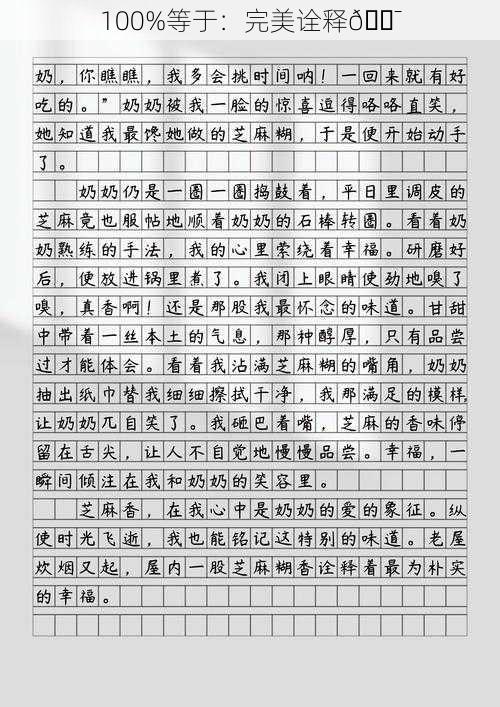 100%等于：完美诠释ð
奶，你瞧瞧，我多会挑时间呐！一回来就有好
吃的。”奶奶被我一脸的惊喜逗得咯咯直笑，
她知道我最馋她做的芝麻糊，于是便开始动手
了。
奶奶仍是一圈一圈捣鼓着，平日里调皮的
芝麻竟也服帖地顺着奶奶的石棒转圈。看着奶
奶熟练的手法，我的心里萦绕着幸福。研磨好
后，便放进锅里煮了。我闭上眼睛使劲地嗅了
嗅，真香啊！还是那股我最怀念的味道。甘甜
中带着一丝本土的气息，那种醇厚，只有品尝
过才能体会。看着我沾满芝麻糊的嘴角，奶奶
抽出纸巾替我细细擦拭干净，我那满足的模样，
让奶奶兀自笑了。我砸巴着嘴，芝麻的香味停
留在舌尖，让人不自觉地慢慢品尝。幸福，一
瞬间倾注在我和奶奶的笑容里。
芝麻香，在我心中是奶奶的爱的象征。纵
使时光飞逝，我也能铭记这特别的味道。老屋
炊烟又起，屋内一股芝麻糊香诠释着最为朴实
的幸福。